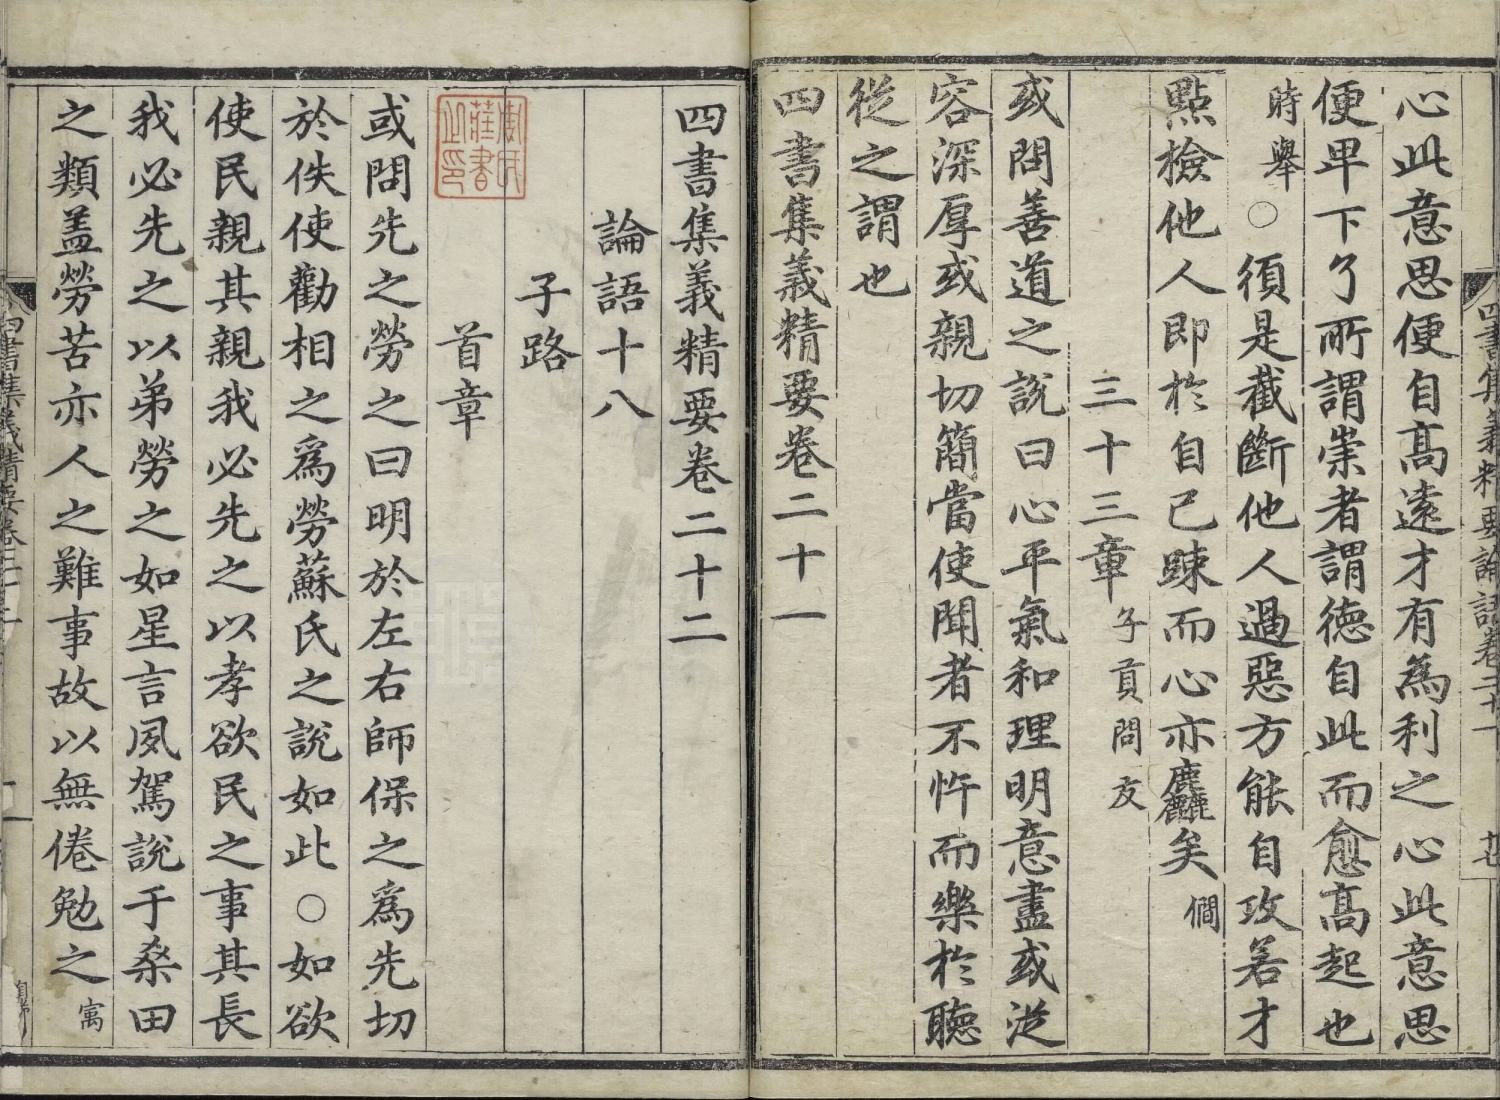 心此意思便自高遠才有為利之心此意思
便卑下了所謂崇者謂德自此而愈高起也
時舉○須是截斷他人過惡方能自攻若才
點檢他人即於自己踈而心亦麤矣僩
三十三章子貢問友
或問善道之說曰心平氣和理明意盡或從
容深厚或親切簡當使聞者不忤而樂於聽
從之謂也
四書集義精要卷二十一
四書集義精要卷二十二
論語十八
子路
首章
或問先之勞之曰明於左右師保之爲先切
於佚使勸相之爲勞蘇氏之說如此○如欲
使民親其親我必先之以孝欲民之事其長
我必先之以弟勞之如星言夙駕說于桑田
之類盖勞苦亦人之難事故以無倦勉之㝢
四書集義精要論語卷二十一
四書集義精要卷二十二